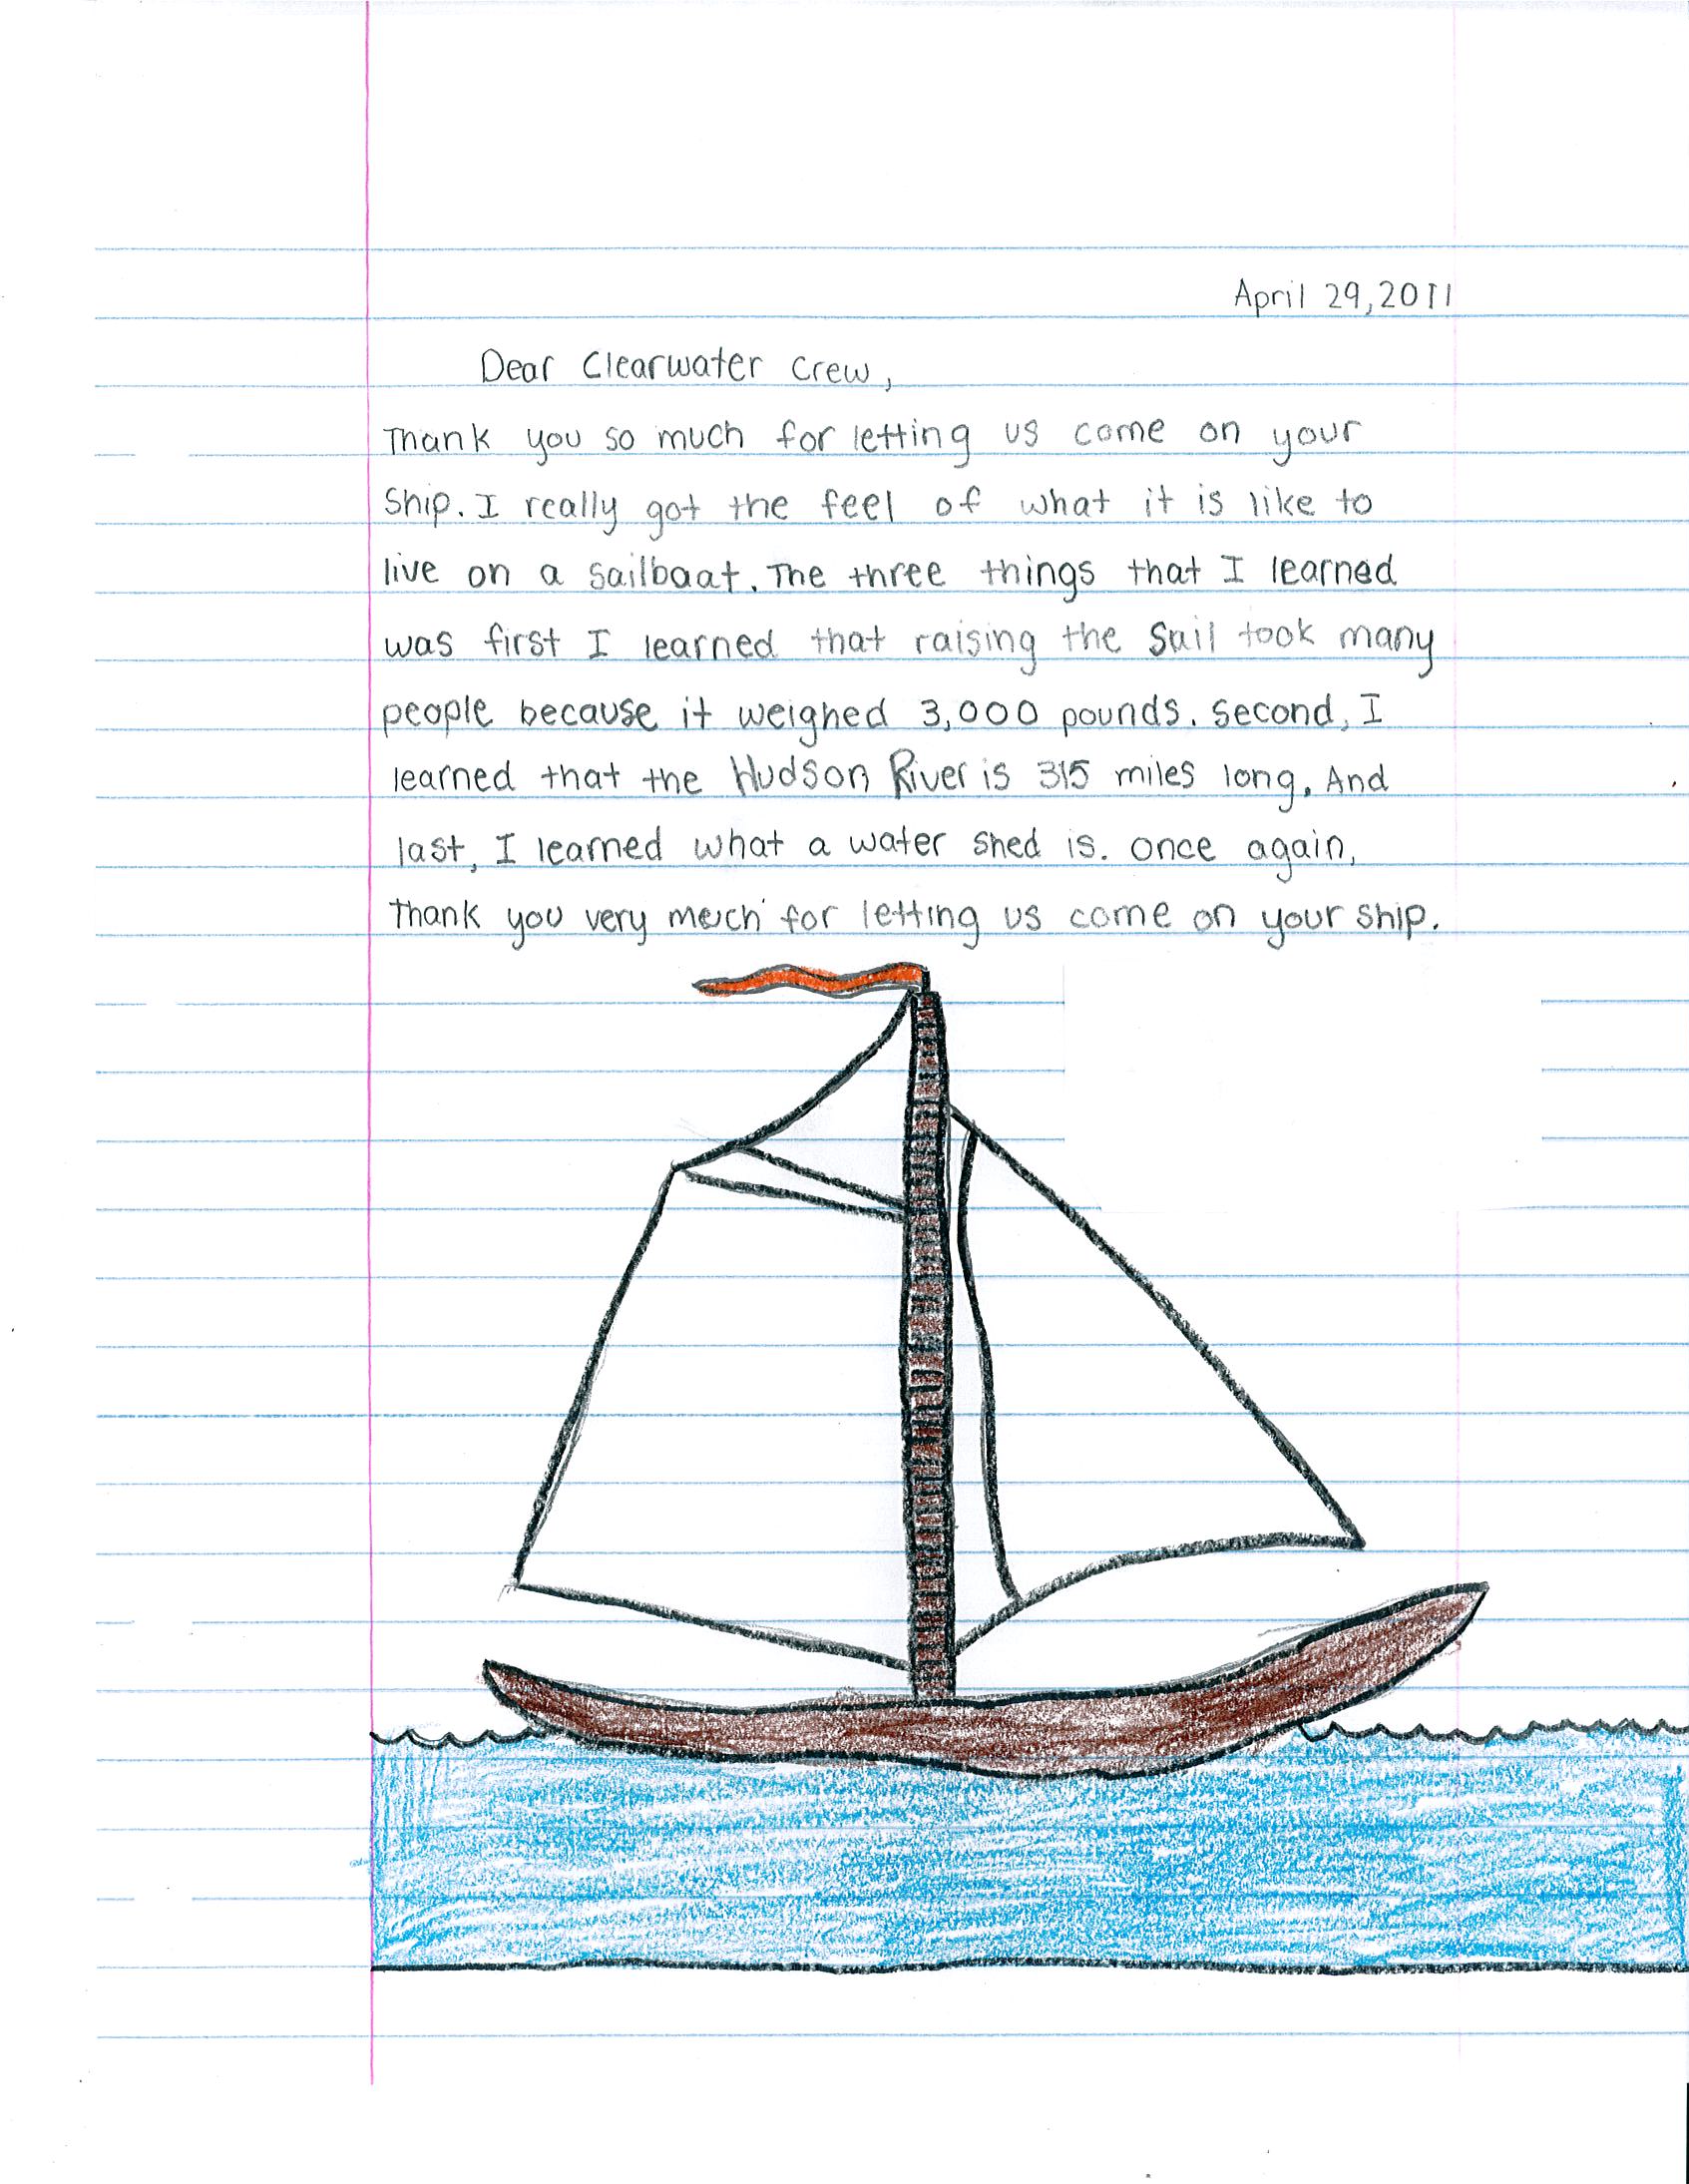 April 29,2011
Dear Clearwater Crew,
Thank you so much for letting us come on your
Ship. I really got the feel of what it is like to
live on a sailbaat. The three things that I learned
was first I learned that raising the Sail took many
people because it weighed 3,000 pounds. Second, I
learned that the Hudson River is 315 miles long. And
last, I learned what a water shed is. once again,
Thank you very much for letting us come on your ship.